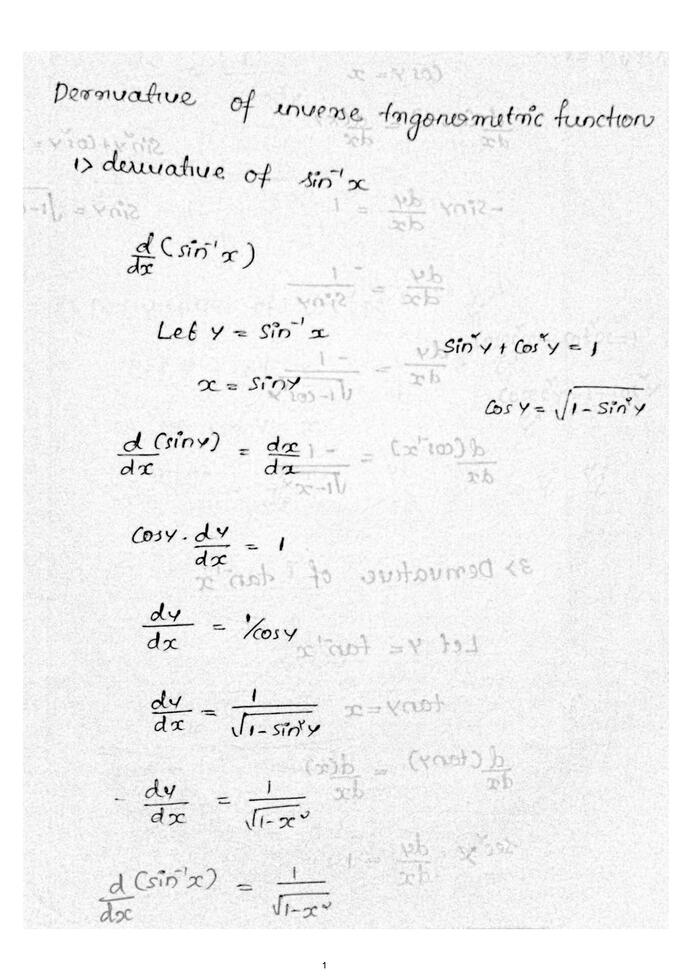 Derivative of inverse trigonometric function
1> derivative of sin⁻¹x
d/dx (sin⁻¹x)
Let y = sin⁻¹x
sin²y + cos²y = 1
x = siny
cos y = √(1 - sin²y)
d/dx (siny) = dx/dx
cosy · dy/dx = 1
dy/dx = 1/cosy
dy/dx = 1/√(1 - sin²y)
- dy/dx = 1/√(1 - x²)
d/dx (sin⁻¹x) = 1/√(1 - x²)
1